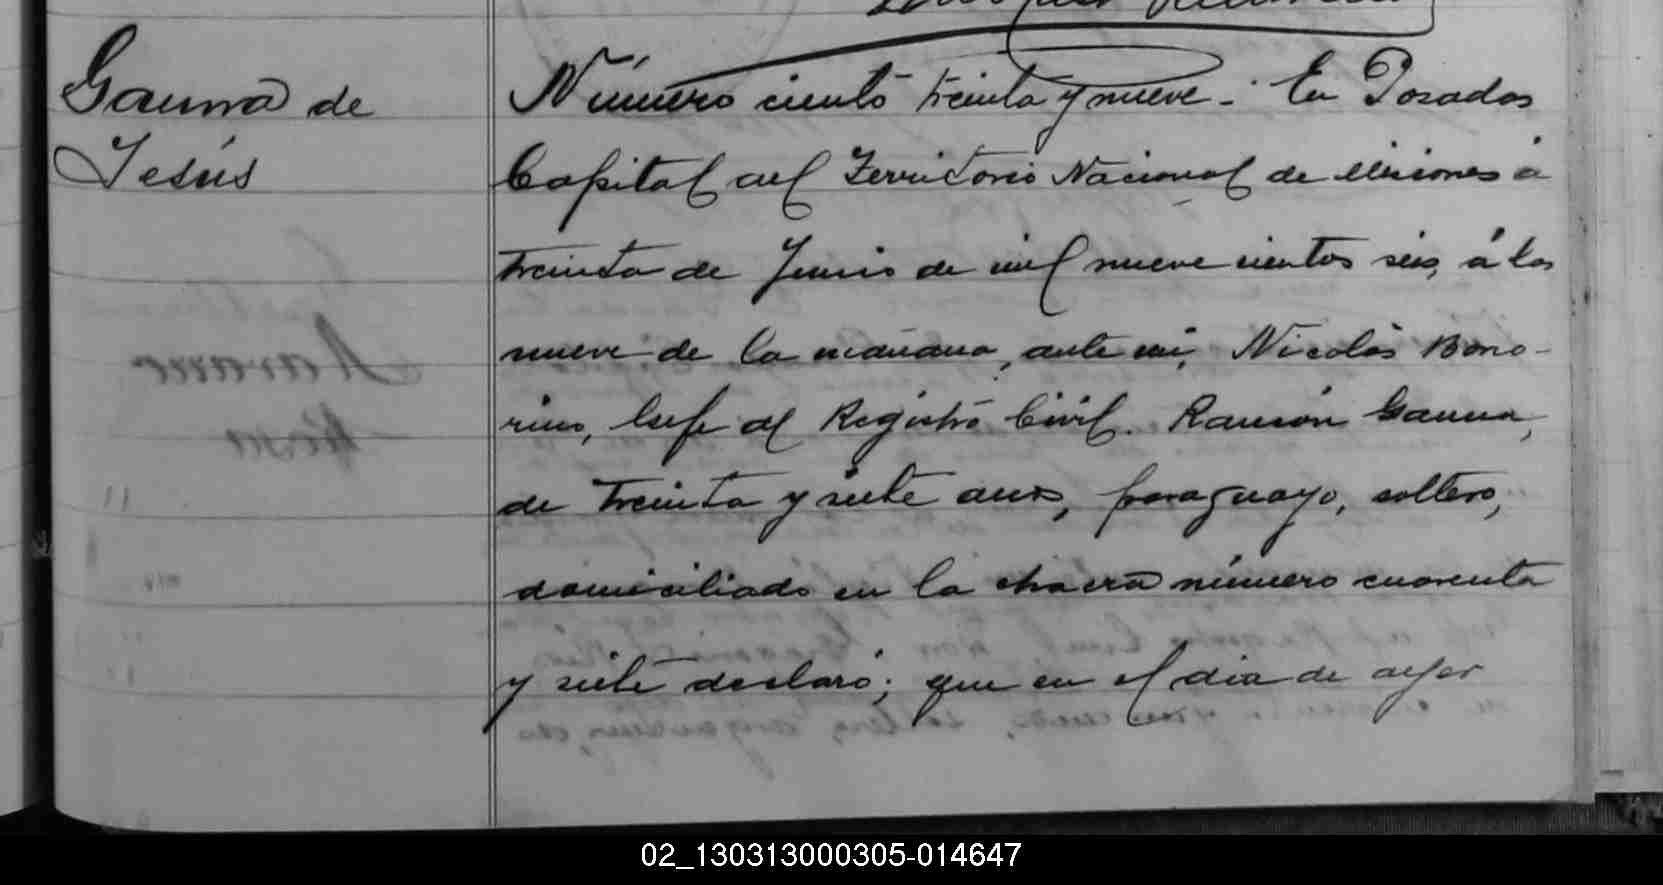 Gauna de
Jesús
Número ciento treinta y nueve.- En Posadas
Capital del Territorio Nacional de Misiones á
treinta de Junio de mil nueve cientos seis, á las
nueve de la mañana, ante mi, Nicolás Bono-
rino, Gefe del Registro Civil. Ramón Gauna,
de treinta y siete años, paraguayo, soltero,
domiciliado en la chacra número cuarenta
y siete declaró; que en el dia de ayer
02_130313000305-014647